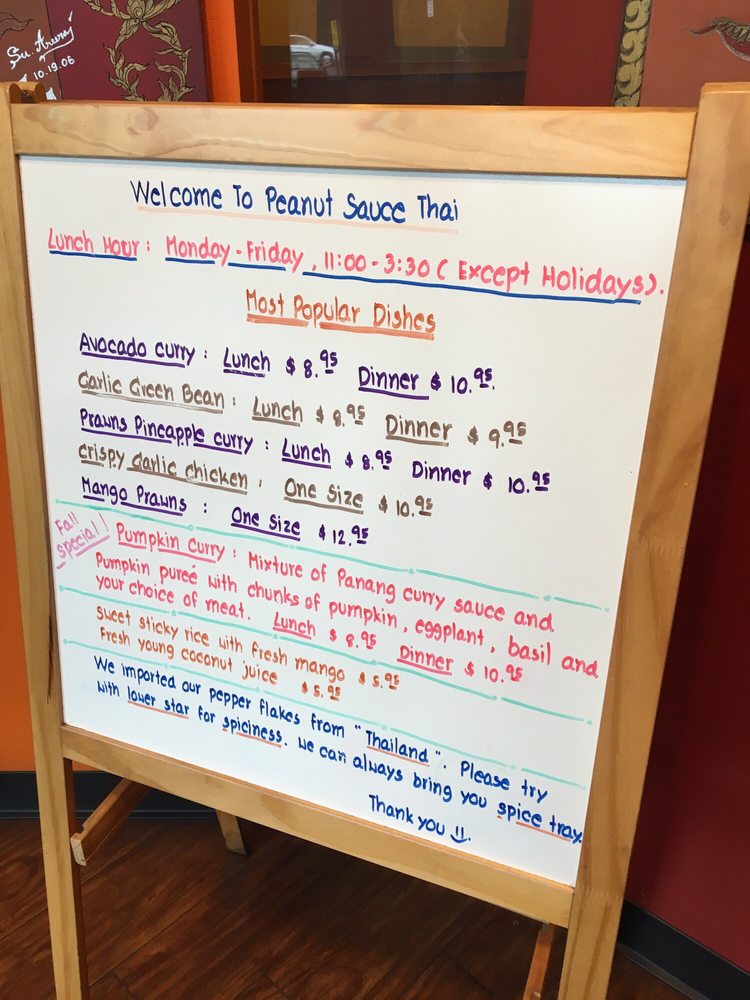 Su. Arunroj
10.19.06
Welcome To Peanut Sauce Thai
Lunch Hour : Monday - Friday , 11:00 - 3:30 ( Except Holidays).
Most Popular Dishes
Avocado curry : Lunch $ 8.95 Dinner $ 10.95.
Garlic Green Bean : Lunch $ 8.95 Dinner $ 9.95
Prawns Pineapple curry : Lunch $ 8.95 Dinner $ 10.95
Crispy Garlic chicken : One Size $ 10.95
Mango Prawns : One Size $ 12.95
Fall special!
Pumpkin curry : Mixture of Panang curry sauce and
Pumpkin pureé with chunks of pumpkin, eggplant, basil and
your choice of meat. Lunch $ 8.95 Dinner $ 10.95
Sweet sticky rice with fresh mango $ 5.95
Fresh young coconut juice $ 5.95
We imported our pepper flakes from "Thailand". Please try
with lower star for spiciness. We can always bring you spice tray.
Thank you